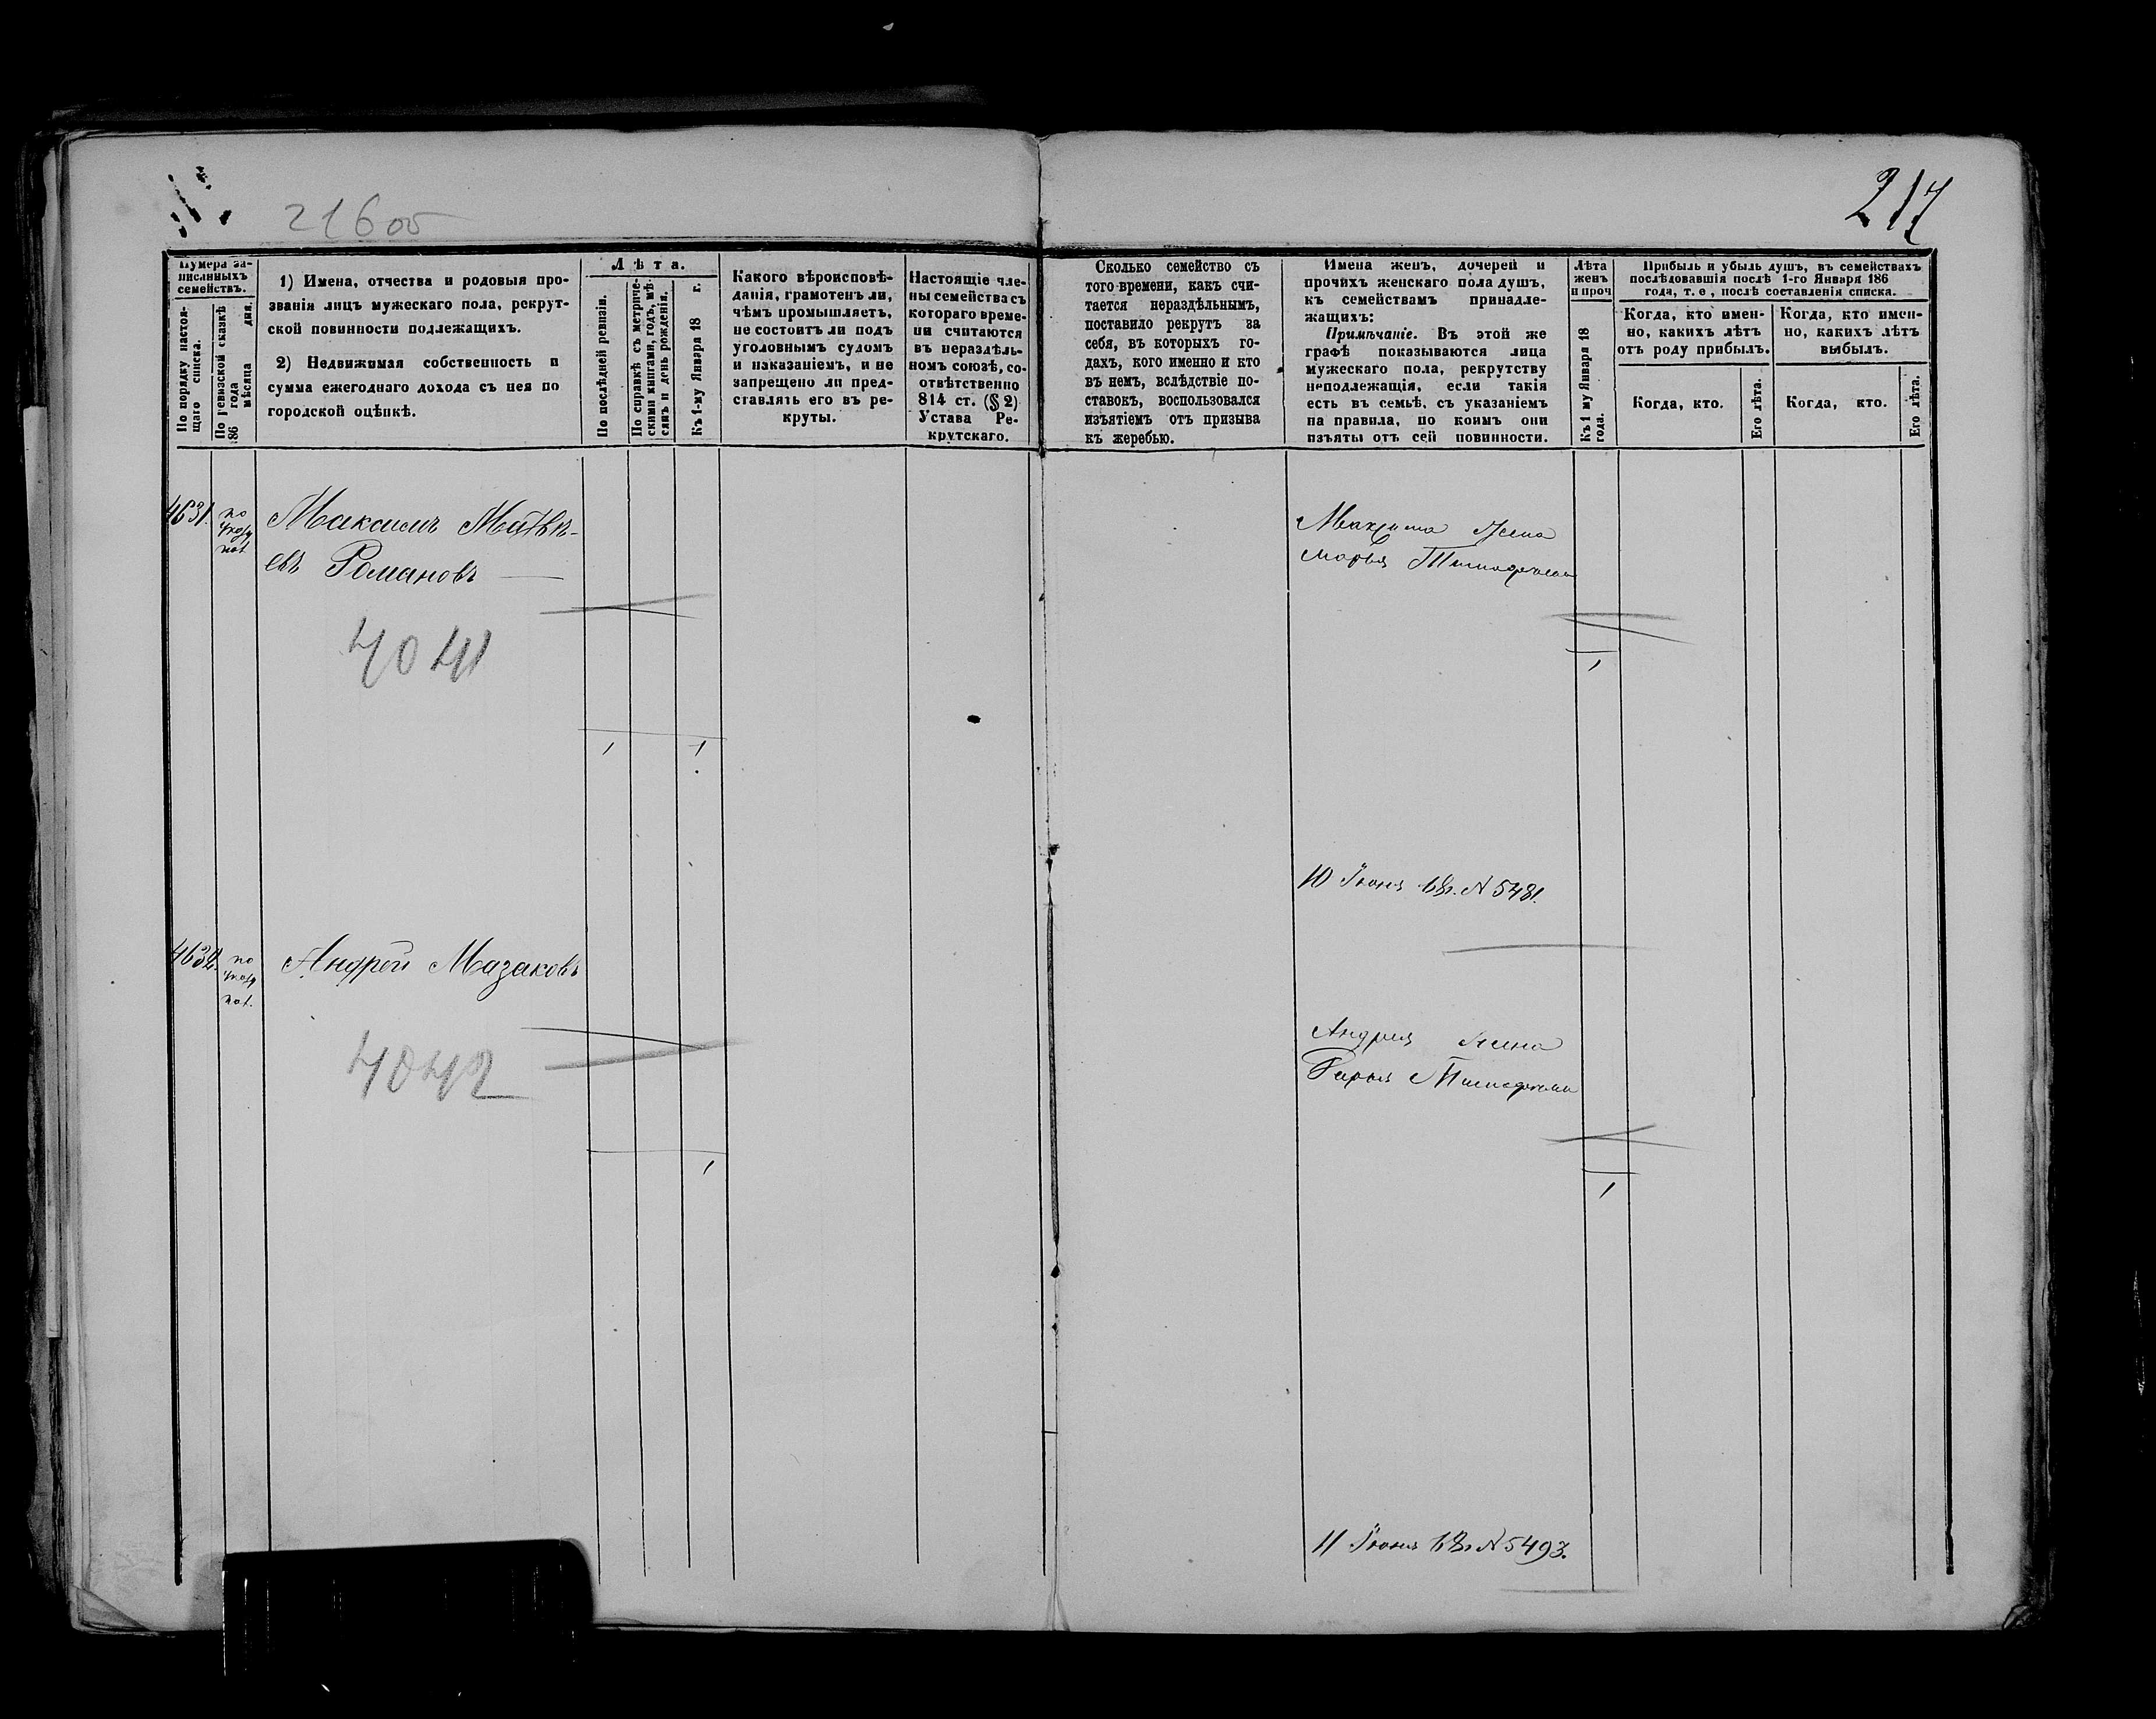 216 об
217
Нумера за-
писанныхъ
семействъ.
По порядку настоя-
щаго списка.
По ревизской сказкѣ
186 года
мѣсяца дня.
1) Имена, отчества и родовыя про-
званія лицъ мужескаго пола, рекрут-
ской повинности подлежащихъ.
2) Недвижимая собственность и
сумма ежегоднаго дохода съ нея по
городской оцѣнкѣ.
Лѣта.
По послѣдней ревизіи.
По справкѣ съ метриче-
скими книгами, годъ, мѣ-
сяцъ и день рожденія.
Къ 1-му Января 18 г.
Какого вѣроисповѣ-
данія, грамотенъ ли,
чѣмъ промышляетъ,
не состоитъ ли подъ
уголовнымъ судомъ
и наказаніемъ, и не
запрещено ли пред-
ставлять его въ ре-
круты.
Настоящіе чле-
ны семейства съ
котораго време-
ни считаются
въ нераздѣль-
номъ союзѣ, со-
отвѣтственно
814 ст. (§ 2)
Устава Ре-
крутскаго.
Сколько семейство съ
того времени, какъ счи-
тается нераздѣльнымъ,
поставило рекрутъ за
себя, въ которыхъ го-
дахъ, кого именно и кто
въ немъ, вслѣдствіе по-
ставокъ, воспользовался
изъятіемъ отъ призыва
къ жеребью.
Имена женъ, дочерей и
прочихъ женскаго пола душъ,
къ семействамъ принадле-
жащихъ:
Примѣчаніе. Въ этой же
графѣ показываются лица
мужескаго пола, рекрутству
неподлежащія, если такія
есть въ семьѣ, съ указаніемъ
на правила, по коимъ они
изъяты отъ сей повинности.
Лѣта
женъ
и проч
Къ 1 му Января 18
года.
Прибыль и убыль душъ, въ семействахъ
послѣдовавшія послѣ 1-го Января 186
года, т. е , послѣ составленія списка.
Когда, кто имен-
но, какихъ лѣтъ
отъ роду прибылъ.
Когда, кто.
Его лѣта.
Когда, кто имен-
но, какихъ лѣтъ
выбылъ.
Когда, кто.
Его лѣта.
4631.
по
Максимъ Матвѣ-
евъ Романовъ
4041
1 1
Максима жена
Марья Тимофеева
1
10 Іюня N 5481.
4632.
по
Андрей Мазаковъ
4042
1
Андрея жена
Дарья Тимофеева
1
11 Іюня N 5493.